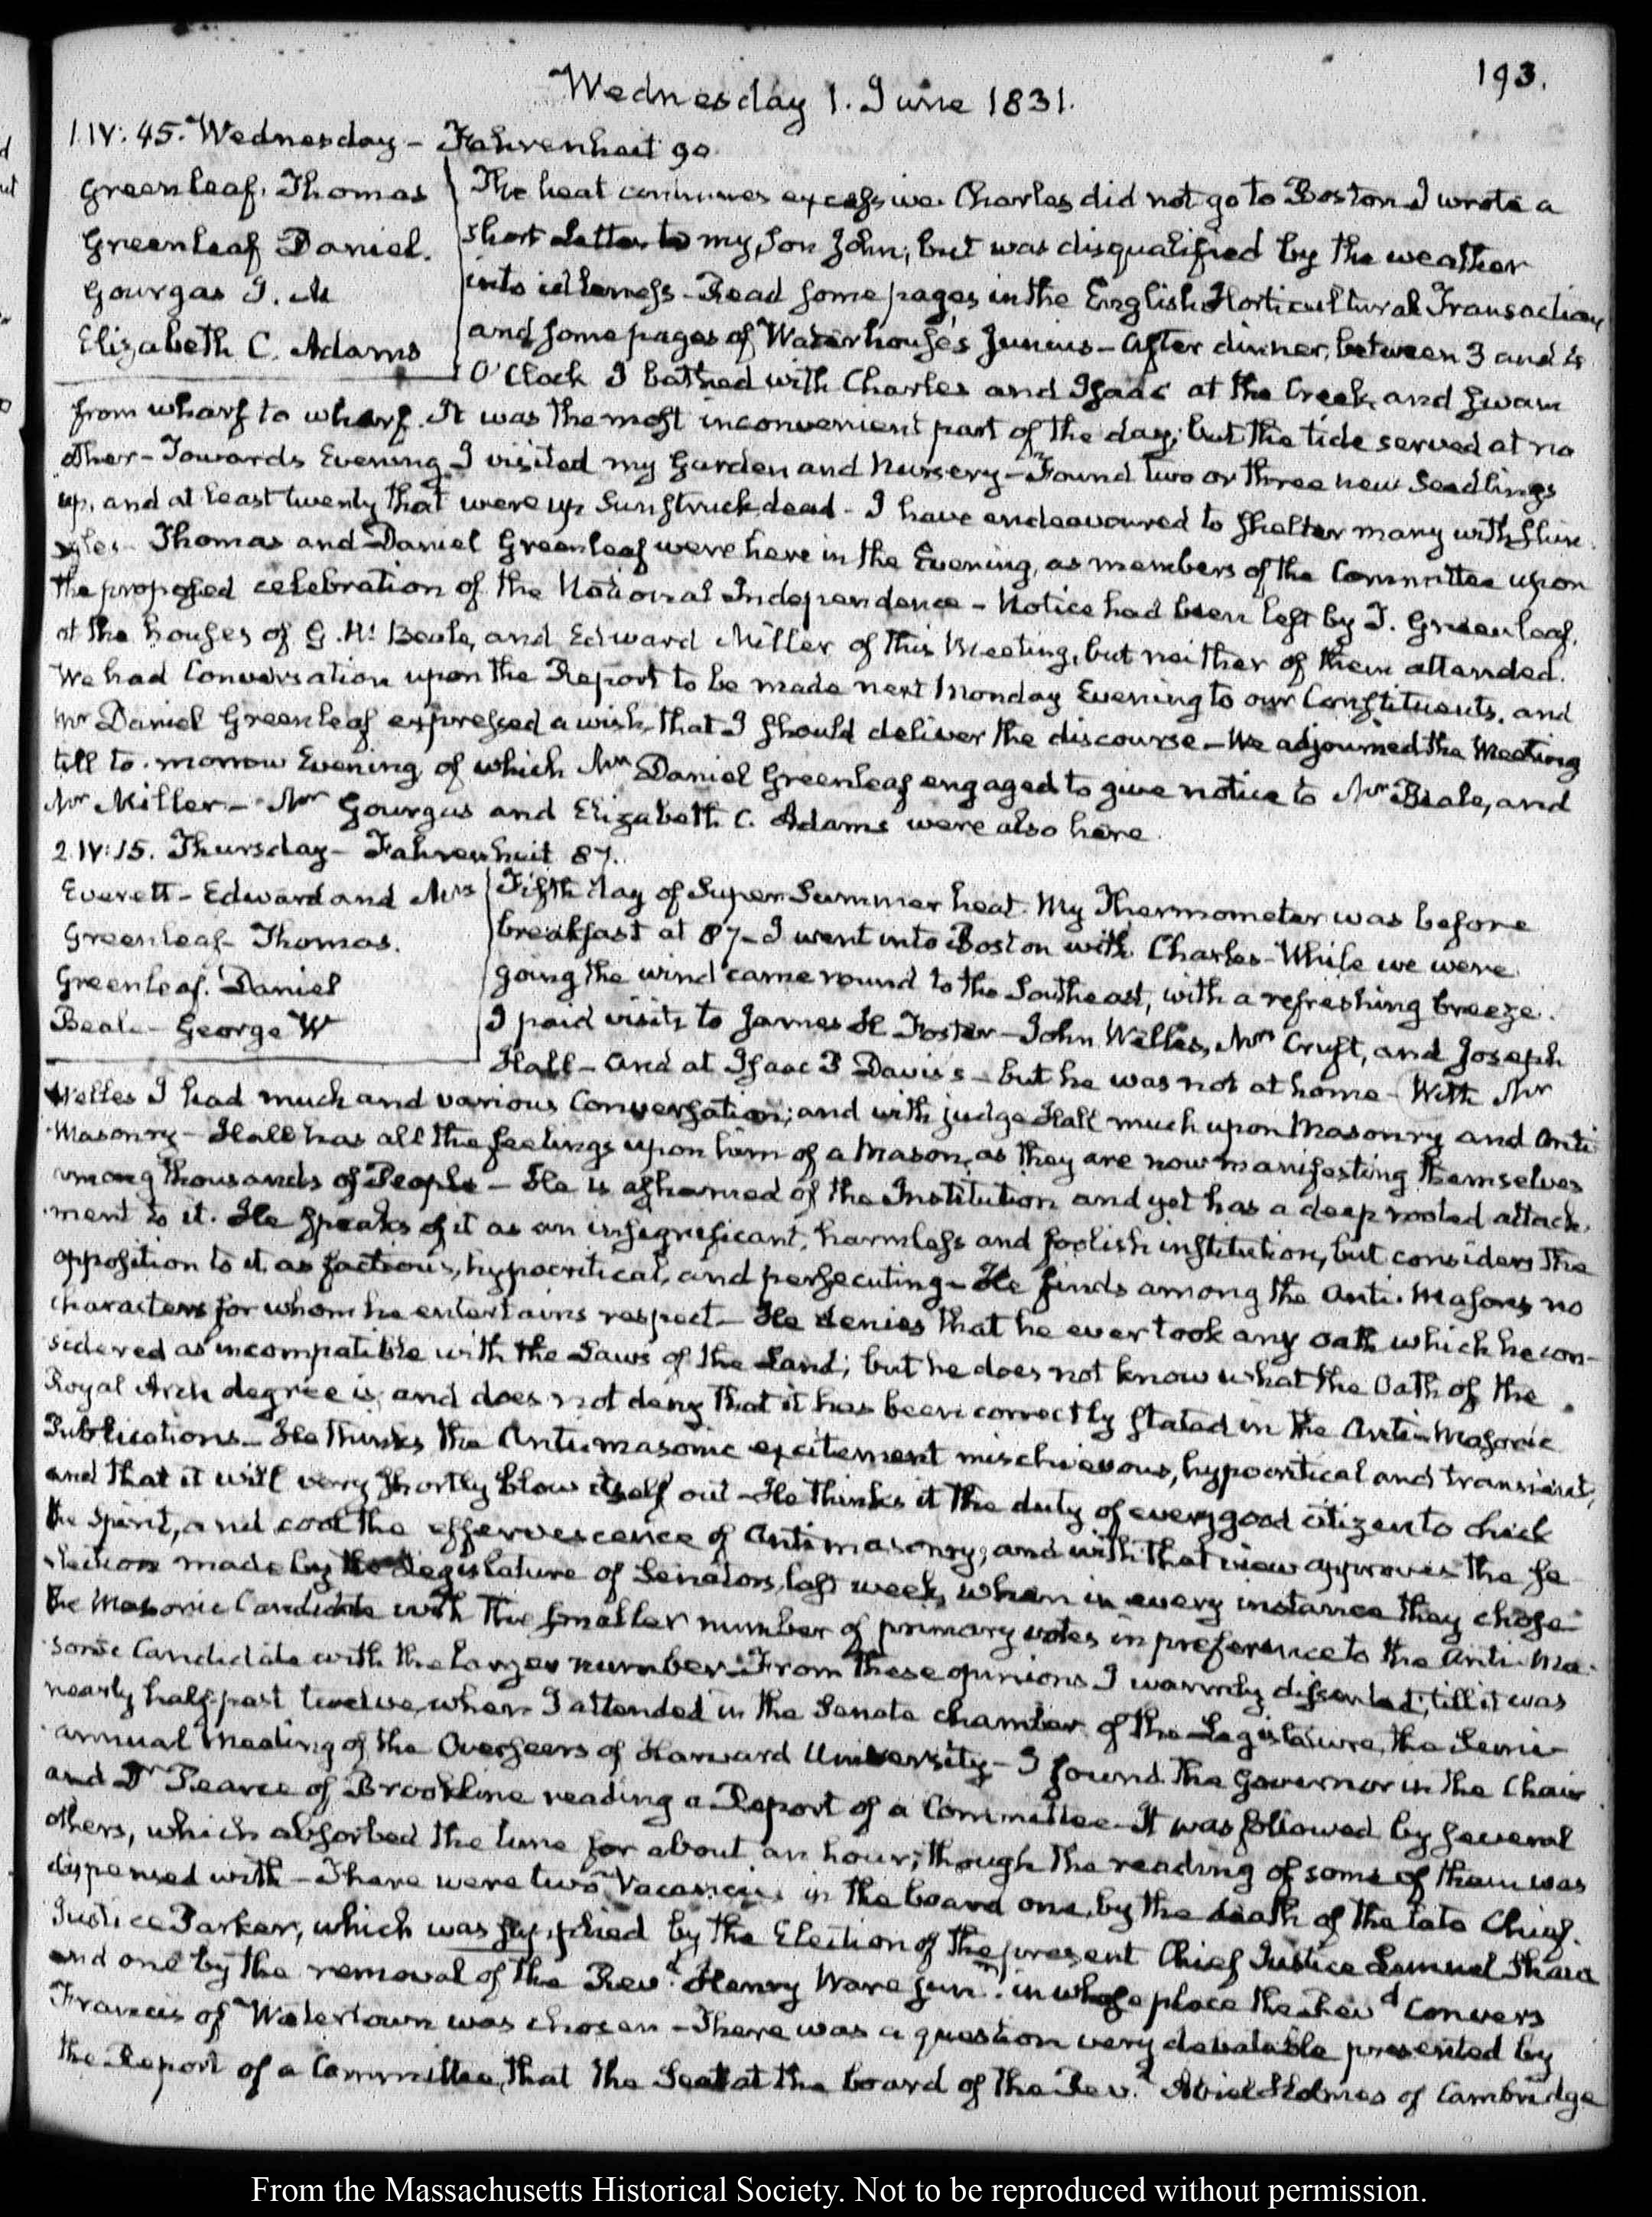 193.
Wednesday 1. June 1831.
1. IV: 45. Wednesday – Fahrenheit 90
Greenleaf. Thomas
Greenleaf Daniel.
Gourgas J. M
Elizabeth C. Adams
The heat continues excessive. Charles did not go to Boston I wrote a
short Letter to my Son John; but was disqualified by the weather
into idleness – Read some pages in the English Horticultural Transactions
and some pages of Waterhouse's Junius – After dinner, between 3 and 4
O'Clock I bathed with Charles and Isaac at the Creek, and swam
from wharf to wharf. It was the most inconvenient part of the day; but the tide served at no
other – Towards Evening I visited my Garden and Nursery – Found two or three new Seedlings
up, and at least twenty that were up Sunstruck dead – I have endeavoured to shelter many with shin
gles – Thomas and Daniel Greenleaf were here in the Evening, as members of the Committee upon
the proposed celebration of the National Independence – Notice had been left by T. Greenleaf,
at the houses of G. W. Beale, and Edward Miller of this Meeting, but neither of them attended.
We had Conversation upon the Report to be made next Monday Evening to our Constituents, and
Mr Daniel Greenleaf expressed a wish that I should deliver the discourse – We adjourned the Meeting
till to-morrow Evening, of which Mr Daniel Greenleaf engaged to give notice to Mr Beale, and
Mr Miller – Mr Gourgas and Elizabeth C. Adams were also here.
2. IV: 15. Thursday – Fahrenheit 87.
Everett – Edward and Mrs
Greenleaf – Thomas.
Greenleaf. Daniel
Beale – George W
Fifth day of Super Summer heat. My Thermometer was before
breakfast at 87 – I went into Boston with Charles – While we were
going the wind came round to the Southeast, with a refreshing breeze.
I paid visits to James H Foster – John Welles, Mr Cruft, and Joseph
Hall – and at Isaac P Davis's – but he was not at home – With Mr
Welles I had much and various Conversation; and with judge Hall much upon Masonry and Anti
Masonry – Hall has all the feelings upon him of a Mason, as they are now manifesting themselves
among thousands of People – He is ashamed of the Institution and yet has a deep rooted attach-
ment to it. He speaks of it as an insignificant, harmless and foolish institution, but considers the
opposition to it, as factious, hypocritical, and persecuting – He finds among the Anti-Masons no
characters for whom he entertains respect – He denies that he ever took any oath which he con-
sidered as incompatible with the Laws of the Land; but he does not know what the Oath of the
Royal Arch degree is, and does not deny that it has been correctly stated in the Anti-Masonic
Publications – He thinks the Antimasonic excitement mischievous, hypocritical and transient;
and that it will very shortly blow itself out – He thinks it the duty of every good citizen to check
the Spirit, and cool the effervescence of Antimasonry; and with that view approves the se
lection made by the Legislature of Senators, last week, when in every instance they chose
the Masonic Candidate with the smaller number of primary votes in preference to the Anti-Ma-
sonic Candidate with the larger number – From these opinions I warmly dissented; till it was
nearly half past twelve, when I attended in the Senate chamber of the Legislature, the Semi-
annual Meeting of the Overseers of Harward University – I found the Governor in the Chair
and Dr Pearce of Brookline reading a Report of a Committee – It was followed by several
others, which absorbed the time for about an hour; though the reading of some of them was
dispensed with – There were two Vacancies in the board one, by the death of the late Chief-
Justice Parker, which was supplied by the Election of the present Chief Justice Lemuel Shaw
and one by the removal of the Revd. Henry Ware junr. in whose place the Revd Convers
Francis of Watertown was chosen – There was a question very debatable presented by
the Report of a Committee, that the Seat at the board of the Revd. Abiel Holmes of Cambridge
From the Massachusetts Historical Society. Not to be reproduced without permission.